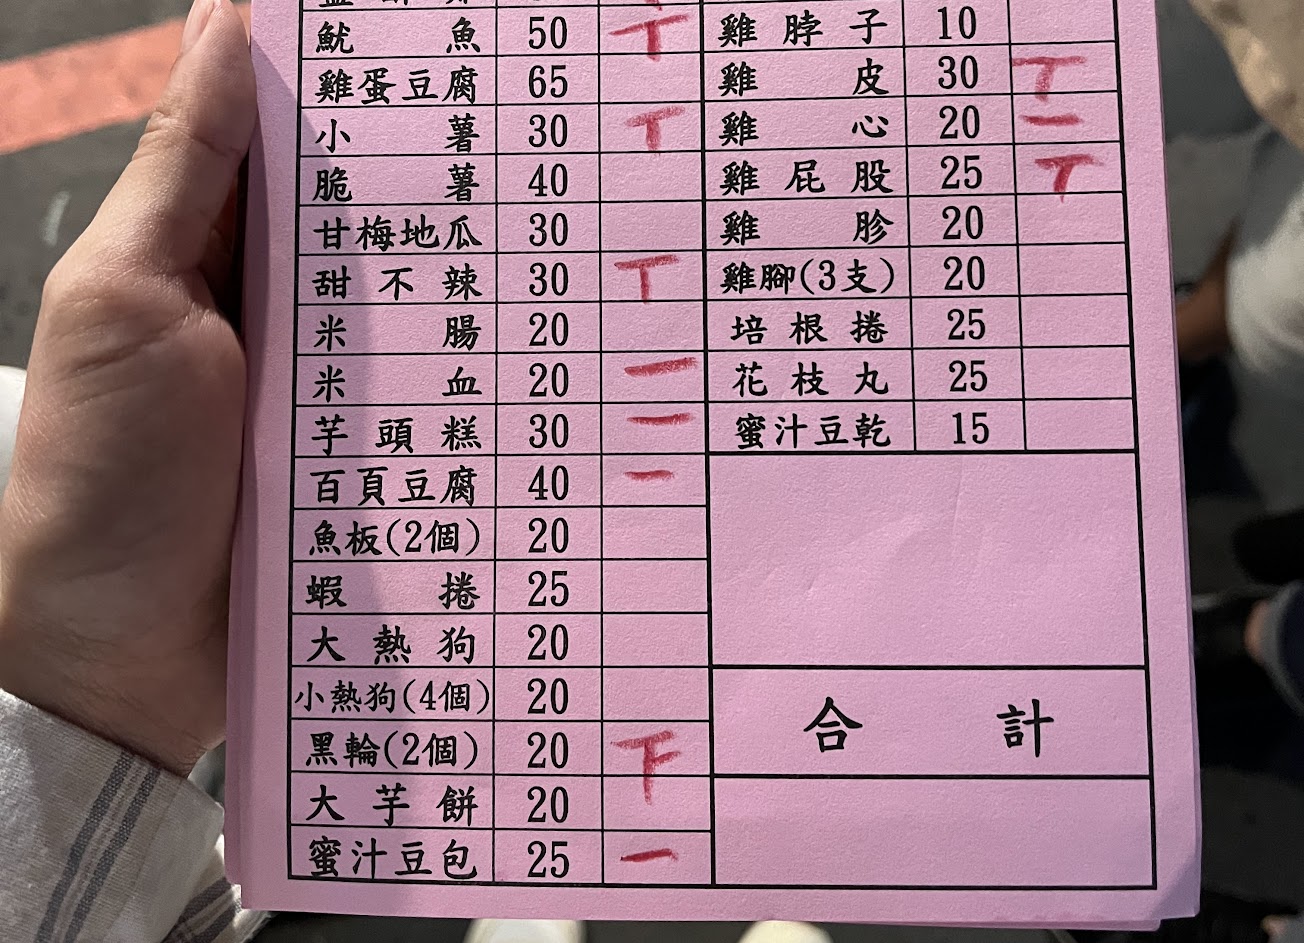 魷魚 50 丅
雞蛋豆腐 65
小薯 30 丅
脆薯 40
甘梅地瓜 30
甜不辣 30 丅
米腸 20
米血 20 一
芋頭糕 30 一
百頁豆腐 40 一
魚板(2個) 20
蝦捲 25
大熱狗 20
小熱狗(4個) 20
黑輪(2個) 20 下
大芋餅 20
蜜汁豆包 25 一
雞脖子 10
雞皮 30 丅
雞心 20 一
雞屁股 25 丅
雞胗 20
雞腳(3支) 20
培根捲 25
花枝丸 25
蜜汁豆乾 15
合計